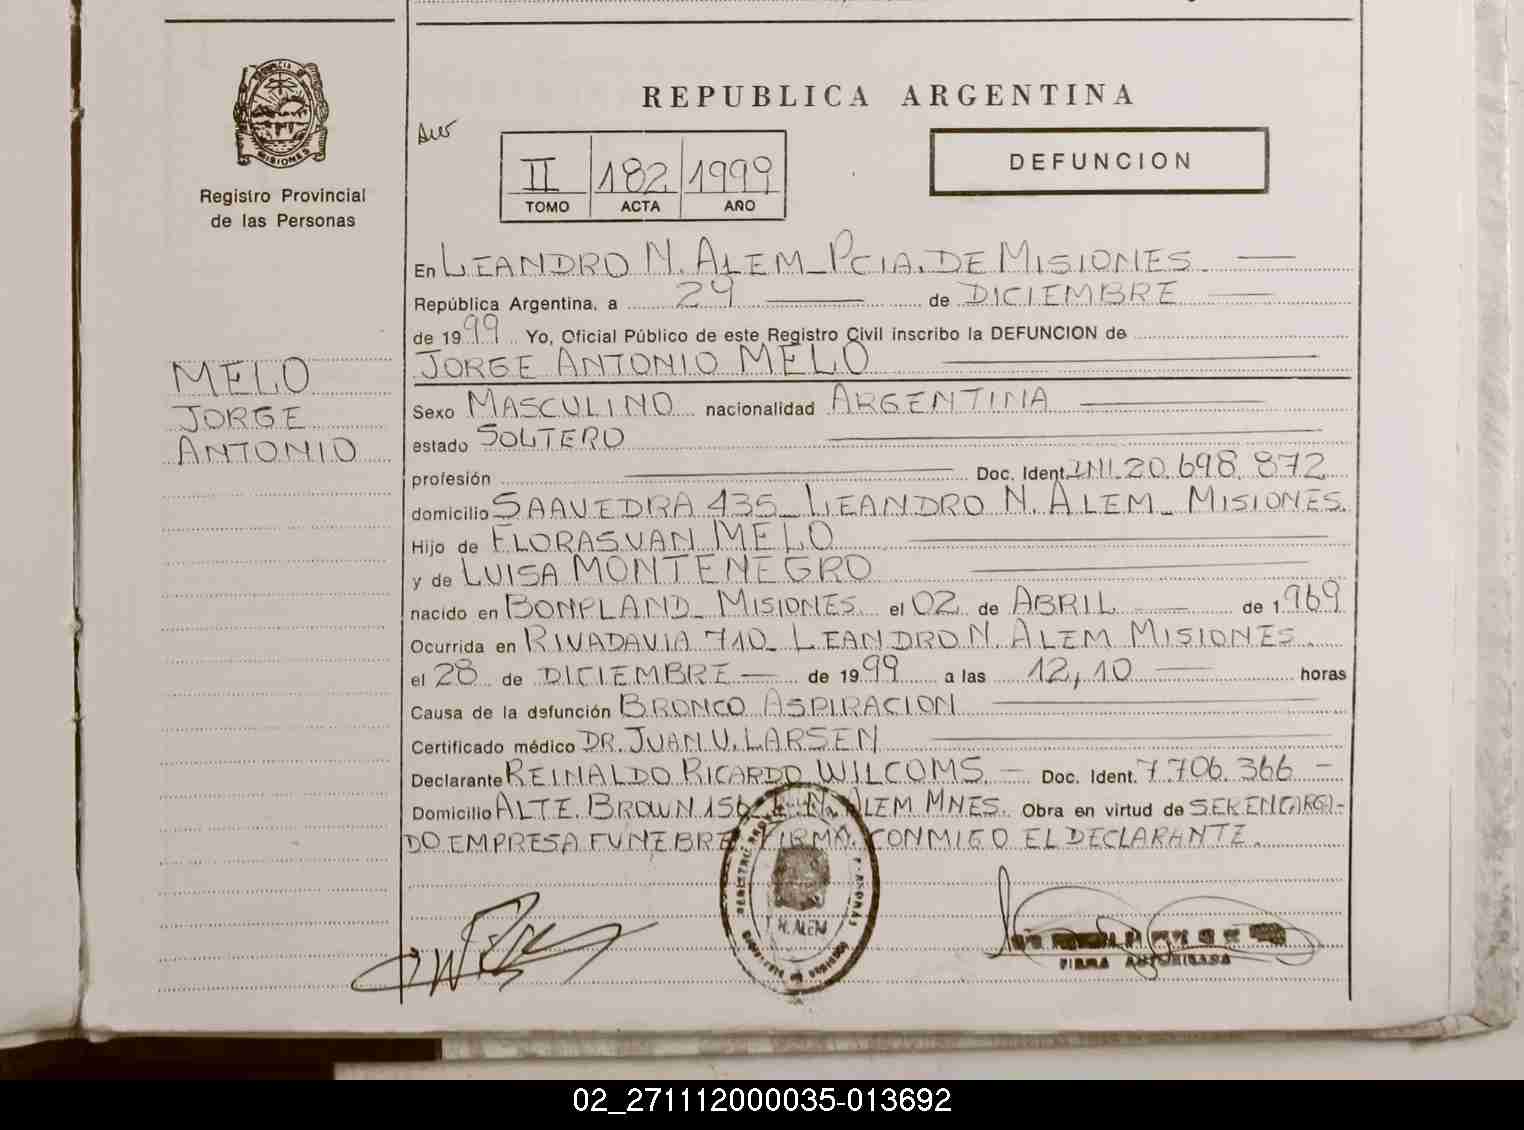 REPUBLICA ARGENTINA
PROVINCIA DE
MISIONES
Registro Provincial
de las Personas
II 182 1999
TOMO ACTA AÑO
DEFUNCION
En LEANDRO N. ALEM_PCIA. DE MISIONES.
República Argentina, a 29 de DICIEMBRE
de 1999 Yo, Oficial Público de este Registro Civil inscribo la DEFUNCION de
JORGE ANTONIO MELO
MELO
JORGE
ANTONIO
Sexo MASCULINO nacionalidad ARGENTINA
estado SOLTERO
profesión Doc. Ident. DNI. 20.698.872
domicilio SAAVEDRA 435_ LEANDRO N. ALEM_ MISIONES.
Hijo de FLORASVAN MELO
y de LUISA MONTENEGRO
nacido en BONPLAND_ MISIONES el 02 de ABRIL de 1.969
Ocurrida en RIVADAVIA 710_ LEANDRO N. ALEM MISIONES.
el 28 de DICIEMBRE de 1999 a las 12,10 horas
Causa de la defunción BRONCO ASPIRACION
Certificado médico DR. JUAN V. LARSEN
Declarante REINALDO RICARDO WILCOMS Doc. Ident. 7.706.366
Domicilio ALTE. BROWN 156 L.N. ALEM MNES. Obra en virtud de SER ENCARGA-
DO EMPRESA FUNEBRE FIRMA CONMIGO EL DECLARANTE.
N. ALEM
FIRMA AUTORIZADA
02_271112000035-013692